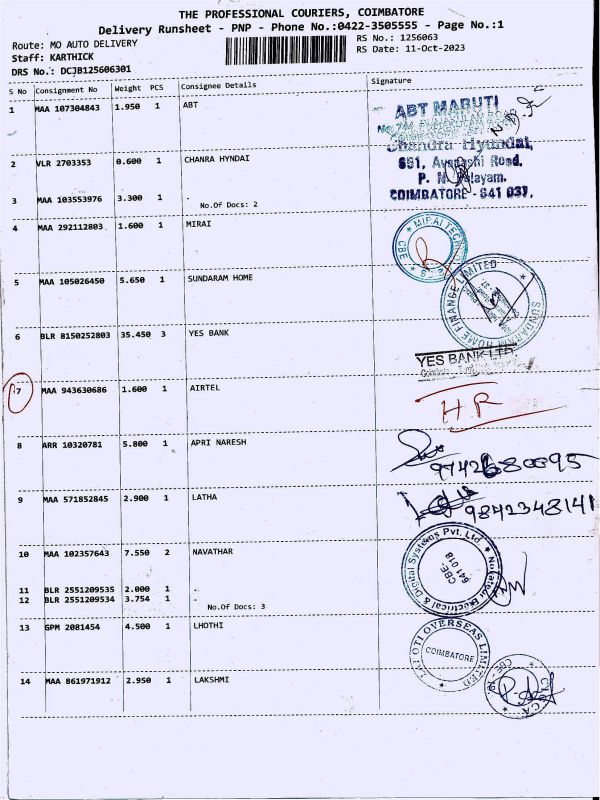 THE PROFESSIONAL COURIERS, COIMBATORE
Delivery Runsheet - PNP - Phone No.:0422-3505555 - Page No.:1
Route: MO AUTO DELIVERY
RS No.: 1256063
Staff: KARTHICK
RS Date: 11-Oct-2023
DRS No.: DCJB125606301
S No Consignment No Weight PCS Consignee Details Signature
1 MAA 107304843 1.950 1 ABT
ABT MARUTI
Chandra Hyundai,
2 VLR 2703353 0.600 1 CHANRA HYNDAI
661, Avanashi Road,
P. N. Palayam.
3 MAA 103553976 3.300 1 .
COIMBATORE - 641 037.
No.Of Docs: 2
4 MAA 292112803 1.600 1 MIRAI
MIRAI TECHNO
CBE
5 MAA 105026450 5.650 1 SUNDARAM HOME
SUNDARAM HOME FINANCE LIMITED
6 BLR 8150252803 35.450 3 YES BANK
YES BANK LTD
7 MAA 943630686 1.600 1 AIRTEL
H.R
8 ARR 10320781 5.800 1 APRI NARESH
9 MAA 571852845 2.900 1 LATHA
9842348141
10 MAA 102357643 7.550 2 NAVATHAR
Electrical & Digital Systems Pvt. Ltd.
CBE
641 018
11 BLR 2551209535 2.000 1
12 BLR 2551209534 3.754 1 .
No.Of Docs: 3
13 GPM 2081454 4.500 1 LHOTHI
OVERSEAS LIMITED
COIMBATORE
14 MAA 861971912 2.950 1 LAKSHMI
CBE - 18.
CA